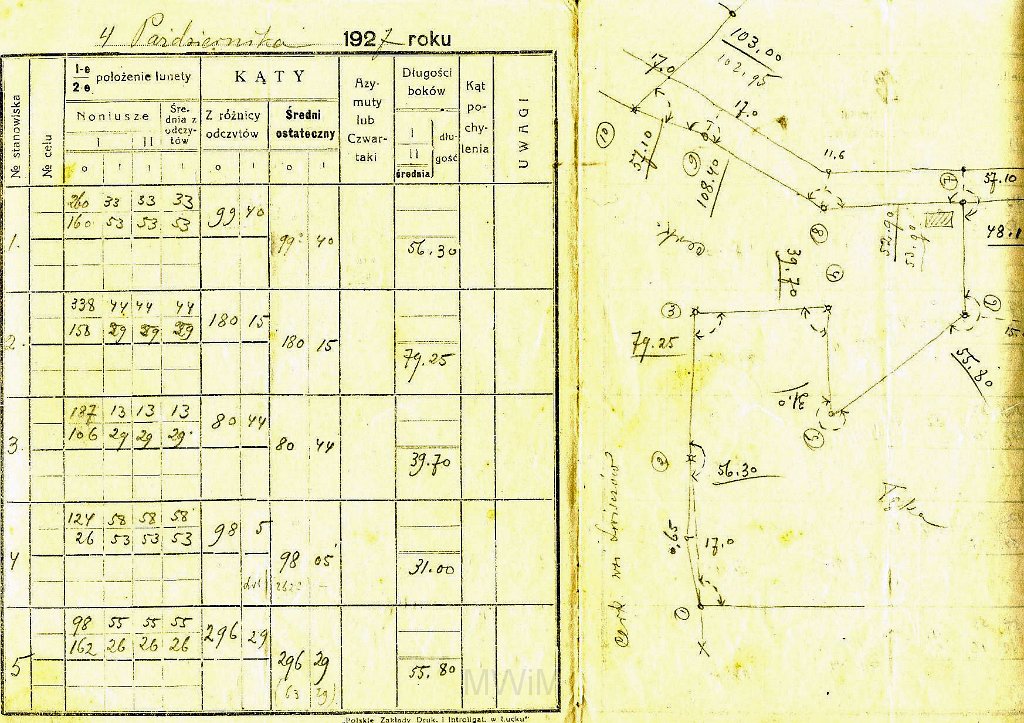 4 Października 1927 roku
№ stanowiska
№ celu
I-e
2-e
położenie lunety
Noniusze
I
II
Śre-
dnia z
odczy-
tów
KĄTY
Z różnicy
odczytów
Średni
ostateczny
Azy-
muty
lub
Czwar-
taki
Długości
boków
I
II
średnia
dłu-
gość
Kąt
po-
chy-
lenia
UWAGI
o ı ı ı o ı o ı
1. 260 33 33 33 99 40
160 53 53 53
99 40 56.30
2. 338 44 44 44 180 15
158 29 29 29
180 15 79.25
3. 187 13 13 13 80 44
106 29 29 29
80 44 39.70
4 124 58 58 58 98 5
26 53 53 53
98 05 31.00
5 98 55 55 55 296 29
162 26 26 26
296 29 55.80
(63 29)
„Polskie Zakłady Druk. i Introligat. w Łucku"
MWiM
103.00
102.95
17.0
17.0
10
57.10
9
108.40
11.6
8
7
57.10
52.90
53.90
48.1
39.70
4
3
79.25
6
15
55.80
31.0
5
2
56.30
0.65
17.0
1